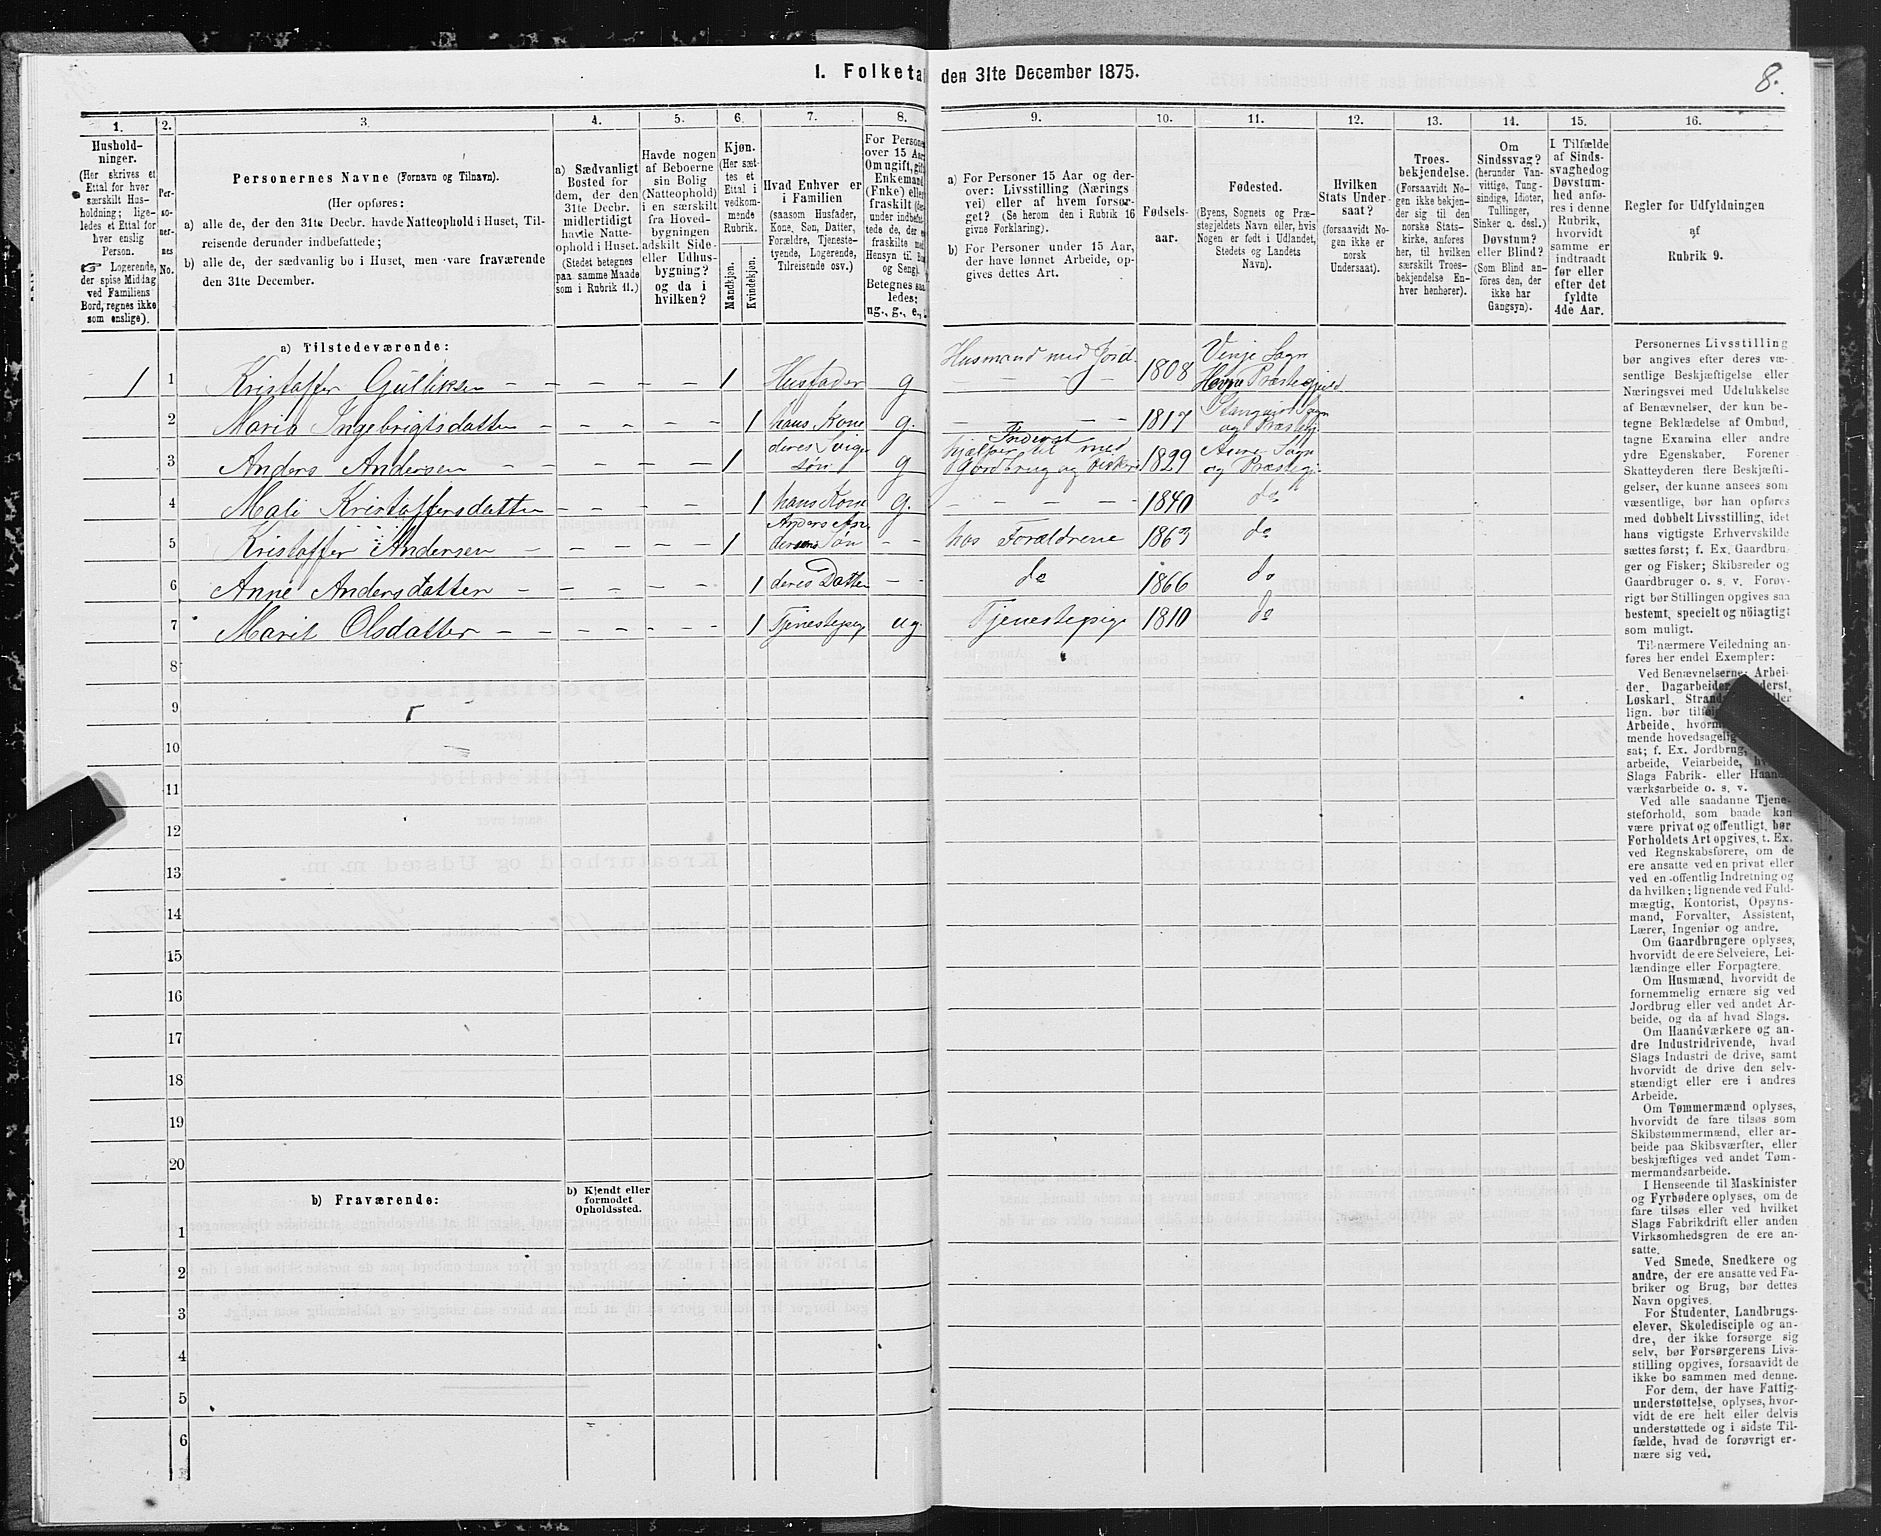 1. Folketal den 31te December 1875.
8.
1.
2.
3.
4.
5.
6.
7.
8.
9.
10.
11.
12.
13.
14.
15.
16.
Hushold-
ninger.
(Her skrives et
Ettal for hver
særskilt Hus-
holdning; lige-
ledes et Ettal for
hver enslig
Person.
☞ Logerende,
der spise Middag
ved Familiens
Bord, regnes ikke
som enslige).
Per-
so-
ner-
nes
No.
Personernes Navne (Fornavn og Tilnavn).
(Her opføres:
a) alle de, der den 31te Decbr. havde Natteophold i Huset, Til-
reisende derunder indbefattede;
b) alle de, der sædvanlig bo i Huset, men vare fraværende
den 31te December.
a) Sædvanligt
Bosted for
dem, der den
31te Decbr.
midlertidigt
havde Natte-
ophold i Huset.
(Stedet betegnes
paa samme Maade
som i Rubrik 11.)
Havde nogen
af Beboerne
sin Bolig
(Natteophold)
i en særskilt
fra Hoved-
bygningen
adskilt Side-
eller Udhus-
bygning?
og da i
hvilken?
Kjøn.
(Her sæt-
tes et
Ettal i
vedkom-
mende
Rubrik.
Mandkjøn.
Kvindekjøn.
Hvad Enhver er
i Familien
(saasom Husfader,
Kone, Søn, Datter,
Forældre, Tjeneste-
tyende, Logerende,
Tilreisende osv.)
For Persone
over 15 Aar
Om ugift, gift
Enkemand
(Fnke) eller
fraskilt (der-
under indbefat-
tede de, der e
fraskilte med
Hensyn til Bo
og Seng).
Betegnes saa
ledes:
ug., g., e.,
a) For Personer 15 Aar og der-
over: Livsstilling (Nærings
vei) eller af hvem forsør-
get? (Se herom den i Rubrik 16
givne Forklaring).
b) For Personer under 15 Aar,
der have lønnet Arbeide, op-
gives dettes Art.
Fødsels-
aar.
Fødested.
(Byens, Sognets og Præ-
stegjeldets Navn eller, hvis
Nogen er født i Udlandet,
Stedets og Landets
Navn).
Hvilken
Stats Under-
saat?
(forsaavidt No-
gen ikke er
norsk
Undersaat).
Troes-
bekjendelse.
(Forsaavidt No-
gen ikke bekjen-
der sig til den
norske Stats-
kirke, anføres
her, til hvilken
særskilt Troes-
bekjendelse En-
hver henhører).
Om
Sindssvag?
(herunder Van-
vittige, Tung-
sindige, Idioter,
Tullinger,
Sinker o. desl.)
Døvstum?
eller Blind?
(Som Blind an-
føres den, der
ikke har
Gangsyn).
I Tilfælde
af Sinds-
svaghed og
Døvstum-
hed anfø-
res i denne
Rubrik,
hvorvidt
samme er
indtraadt
før eller
efter det
fyldte
4de Aar.
Regler for Udfyldningen
af
Rubrik 9.
a) Tilstedeværende:
1 1 Kristoffer Gulliksen 1 Husfader g Husmand med Jord 1808 Vinje Sogn
Hevne Præstegjeld
2 Maria Ingebrigtsdatter 1 hans Kone g. 1817 Stangvik Sogn
og Præstegj.
3 Anders Andersen 1 deres Sviger
søn g Inderst
hjælper til med
Gaardbrug og Fiskeri 1829 Aure Sogn
og Præstegj.
4 Mali Kristoffersdatter 1 hans Kone g. 1840 do
5 Kristoffer Andersen 1 Anders An
dersens Søn hos Forældrene 1863 do
6 Anne Andersdatter 1 deres Datter do 1866 do
7 Marit Olsdatter 1 Tjenestepige ug. Tjenestepige 1810 do
8
9
10
11
12
13
14
15
16
17
18
19
20
b) Fraværende:
b) Kjendt eller
formodet
Opholdssted.
1
2
3
4
5
6
Personernes Livsstilling
bør angives efter deres væ-
sentlige Beskjæftigelse eller
Næringsvei med Udelukkelse
af Benævnelser, der kun be-
tegne Beklædelse af Ombud,
tagne Examina eller andre
ydre Egenskaber. Forener
Skatteyderen flere Beskjæfti-
gelser, der kunne ansees som
væsentlige, bør han opføres
med dobbelt Livsstilling, idet
hans vigtigste Erhvervskilde
sættes først; f. Ex. Gaardbru-
ger og Fisker; Skibsreder og
Gaardbruger o. s. v. Forøv-
rigt bør Stillingen opgives saa
bestemt, specielt og nöiagtigt
som muligt.
Til nærmere Veiledning an-
føres her endel Exempler:
Ved Benævnelserne: Arbei-
der, Dagarbeider, Inderst,
Løskarl, Strand
lign. bør
Arbeide,
mende hovedsagelig
sat; f. Ex. Jordbrug,
arbeide, Veiarbeide,
Slags Fabrik- eller Haand-
værksarbeide o. s. v.
Ved alle saadanne Tjene-
steforhold, som baade kan
være privat og offentligt, bør
Forholdets Art opgives, t. Ex.
ved Regnskabsførere, om de
ere ansatte ved en privat eller
ved en offentlig Indretning og
da hvilken; lignende ved Fuld-
mægtig, Kontorist, Opsyns-
mand, Forvalter, Assistent,
Lærer, Ingeniør og andre.
Om Gaardbrugere oplyses,
hvorvidt de ere Selveiere, Lei-
lændinge eller Forpagtere.
Om Husmænd, hvorvidt de
fornemmelig ernære sig ved
Jordbrug eller ved andet Ar-
beide, og da af hvad Slags.
Om Haandværkere og an-
dre Industridrivende, hvad
Slags Industri de drive, samt
hvorvidt de drive den selv-
stændigt eller ere i andres
Arbeide.
Om Tømmermænd oplyses,
hvorvidt de fare tilsøs som
Skibstømmermænd, eller ar-
beide paa Skibsværfter, eller
beskjæftiges ved andet Tøm-
mermandsarbeide.
I Henseende til Maskinister
og Fyrbødere oplyses, om de
fare tilsøs eller ved hvilket
Slags Fabrikdrift eller anden
Virksomhedsgren de ere an-
satte.
Ved Smede, Snedkere og
andre, der ere ansatte ved Fa-
briker og Brug, bør dettes
Navn opgives.
For Studenter, Landbrugs-
elever, Skoledisciple og an-
dre, der ikke forsørge sig
selv, bør Forsørgerens Livs-
stilling opgives, forsaavidt de
ikke bo sammen med denne.
For dem, der have Fattig-
understøttelse, oplyses, hvor-
vidt de ere helt eller delvis
understøttede og i sidste Til-
fælde, hvad de forøvrigt er-
nære sig ved.